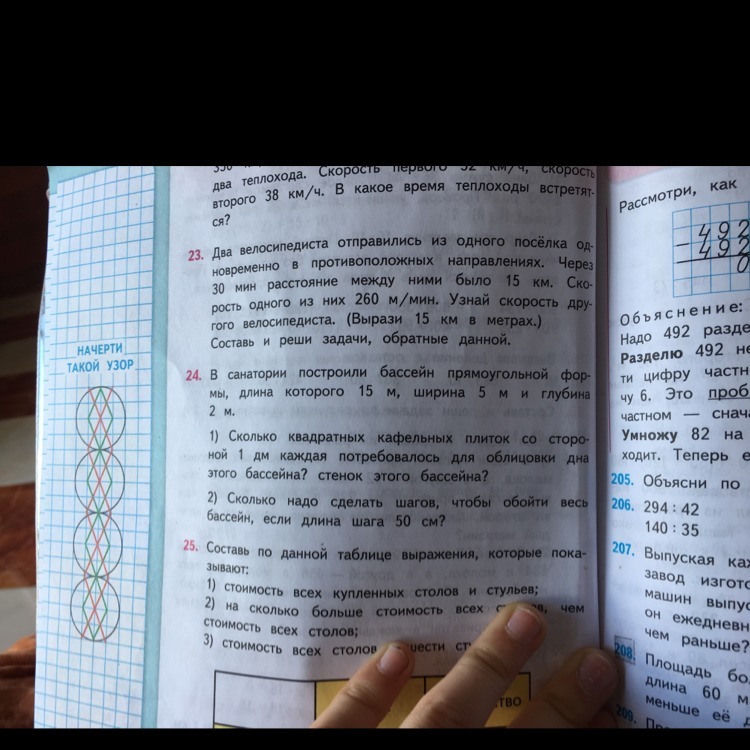 два теплохода. Скорость первого 32 км/ч, скорость
второго 38 км/ч. В какое время теплоходы встретят-
ся?
23. Два велосипедиста отправились из одного посёлка од-
новременно в противоположных направлениях. Через
30 мин расстояние между ними было 15 км. Ско-
рость одного из них 260 м/мин. Узнай скорость дру-
гого велосипедиста. (Вырази 15 км в метрах.)
Составь и реши задачи, обратные данной.
24. В санатории построили бассейн прямоугольной фор-
мы, длина которого 15 м, ширина 5 м и глубина
2 м.
1) Сколько квадратных кафельных плиток со сторо-
ной 1 дм каждая потребовалось для облицовки дна
этого бассейна? стенок этого бассейна?
2) Сколько надо сделать шагов, чтобы обойти весь
бассейн, если длина шага 50 см?
25. Составь по данной таблице выражения, которые пока-
зывают:
1) стоимость всех купленных столов и стульев;
2) на сколько больше стоимость всех чем
стоимость всех столов;
3) стоимость всех столов
НАЧЕРТИ
ТАКОЙ УЗОР
Рассмотри, как
492
- 492
0
Объяснение:
Надо 492 разде
Разделю 492 не
ти цифру частн
чу 6. Это проб
частном — снача
Умножу 82 на
ходит. Теперь е
205. Объясни по
206. 294 : 42
140 : 35
207. Выпуская каж
завод изгото
машин выпус
он ежедневн
чем раньше?
208. Площадь бол
длина 60 м
меньше её д
209.